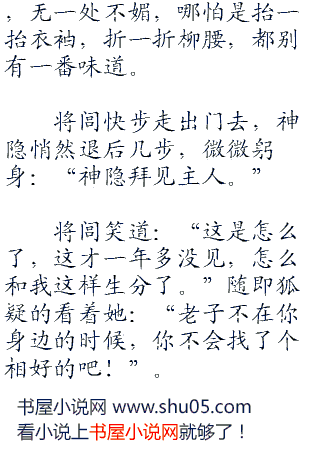 ，无一处不媚，哪怕是抬一
抬衣袖，折一折柳腰，都别
有一番味道。
将闾快步走出门去，神
隐悄然退后几步，微微躬
身：“神隐拜见主人。”
将闾笑道：“这是怎么
了，这才一年多没见，怎么
和我这样生分了。”随即狐
疑的看着她：“老子不在你
身边的时候，你不会找了个
相好的吧！”。
书屋小说网 www.shu05.com
看小说上书屋小说网就够了！